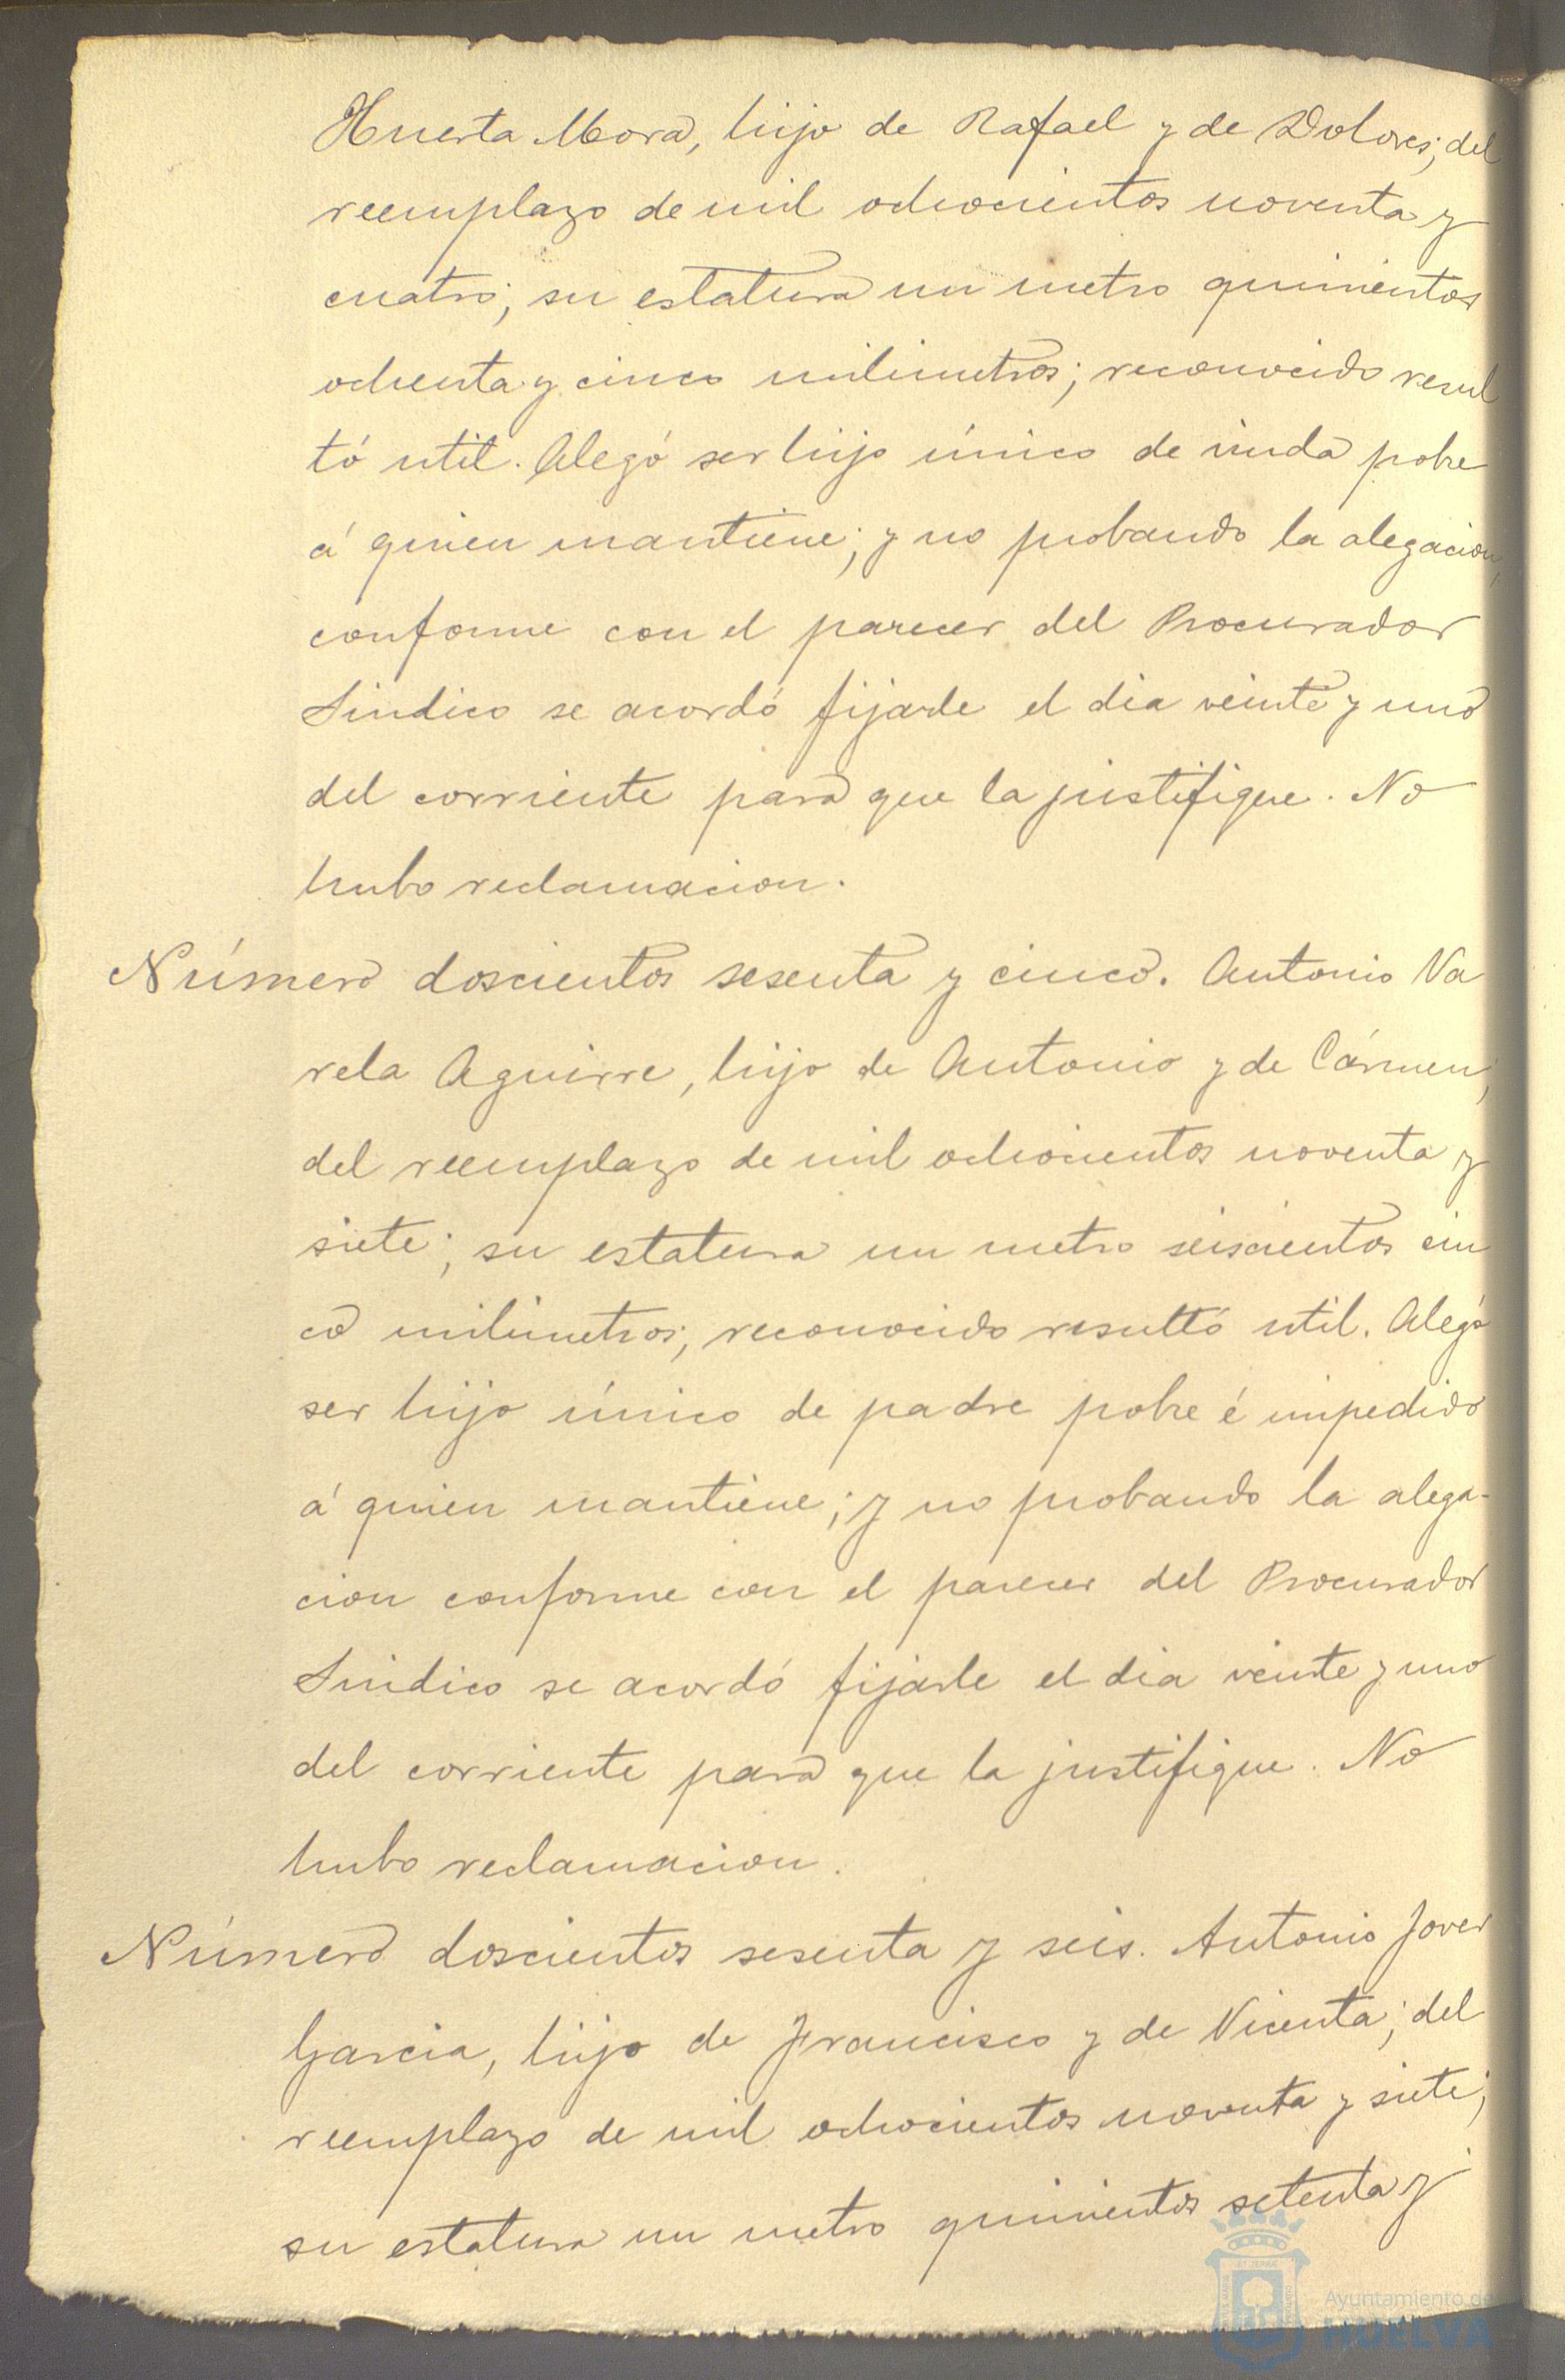 Huerta Mora, hijo de Rafael y de Dolores; del
reemplazo de mil ochocientos noventa y
cuatro; su estatura un metro quinientos
ochenta y cinco milimetros; reconocido resul
tó util. Alegó ser hijo único de viuda pobre
á quien mantiene; y no probando la alegacion,
conforme con el parecer del Procurador
Sindico se acordó fijarle el dia veinte y uno
del corriente para que la justifique. No
hubo reclamacion.
Número doscientos sesenta y cinco. Antonio Va
rela Aguirre, hijo de Antonio y de Cármen;
del reemplazo de mil ochocientos noventa y
siete; su estatura un metro seiscientos cin
co milimetros; reconocido resultó util. Alegó
ser hijo único de padre pobre é impedido
á quien mantiene; y no probando la alega-
cion conforme con el parecer del Procurador
Sindico se acordó fijarle el dia veinte y uno
del corriente para que la justifique. No
hubo reclamacion.
Número doscientos sesenta y seis. Antonio Jover
Garcia, hijo de Francisco y de Vicenta; del
reemplazo de mil ochocientos noventa y siete;
su estatura un metro quinientos setenta y
Ayuntamiento de
HUELVA